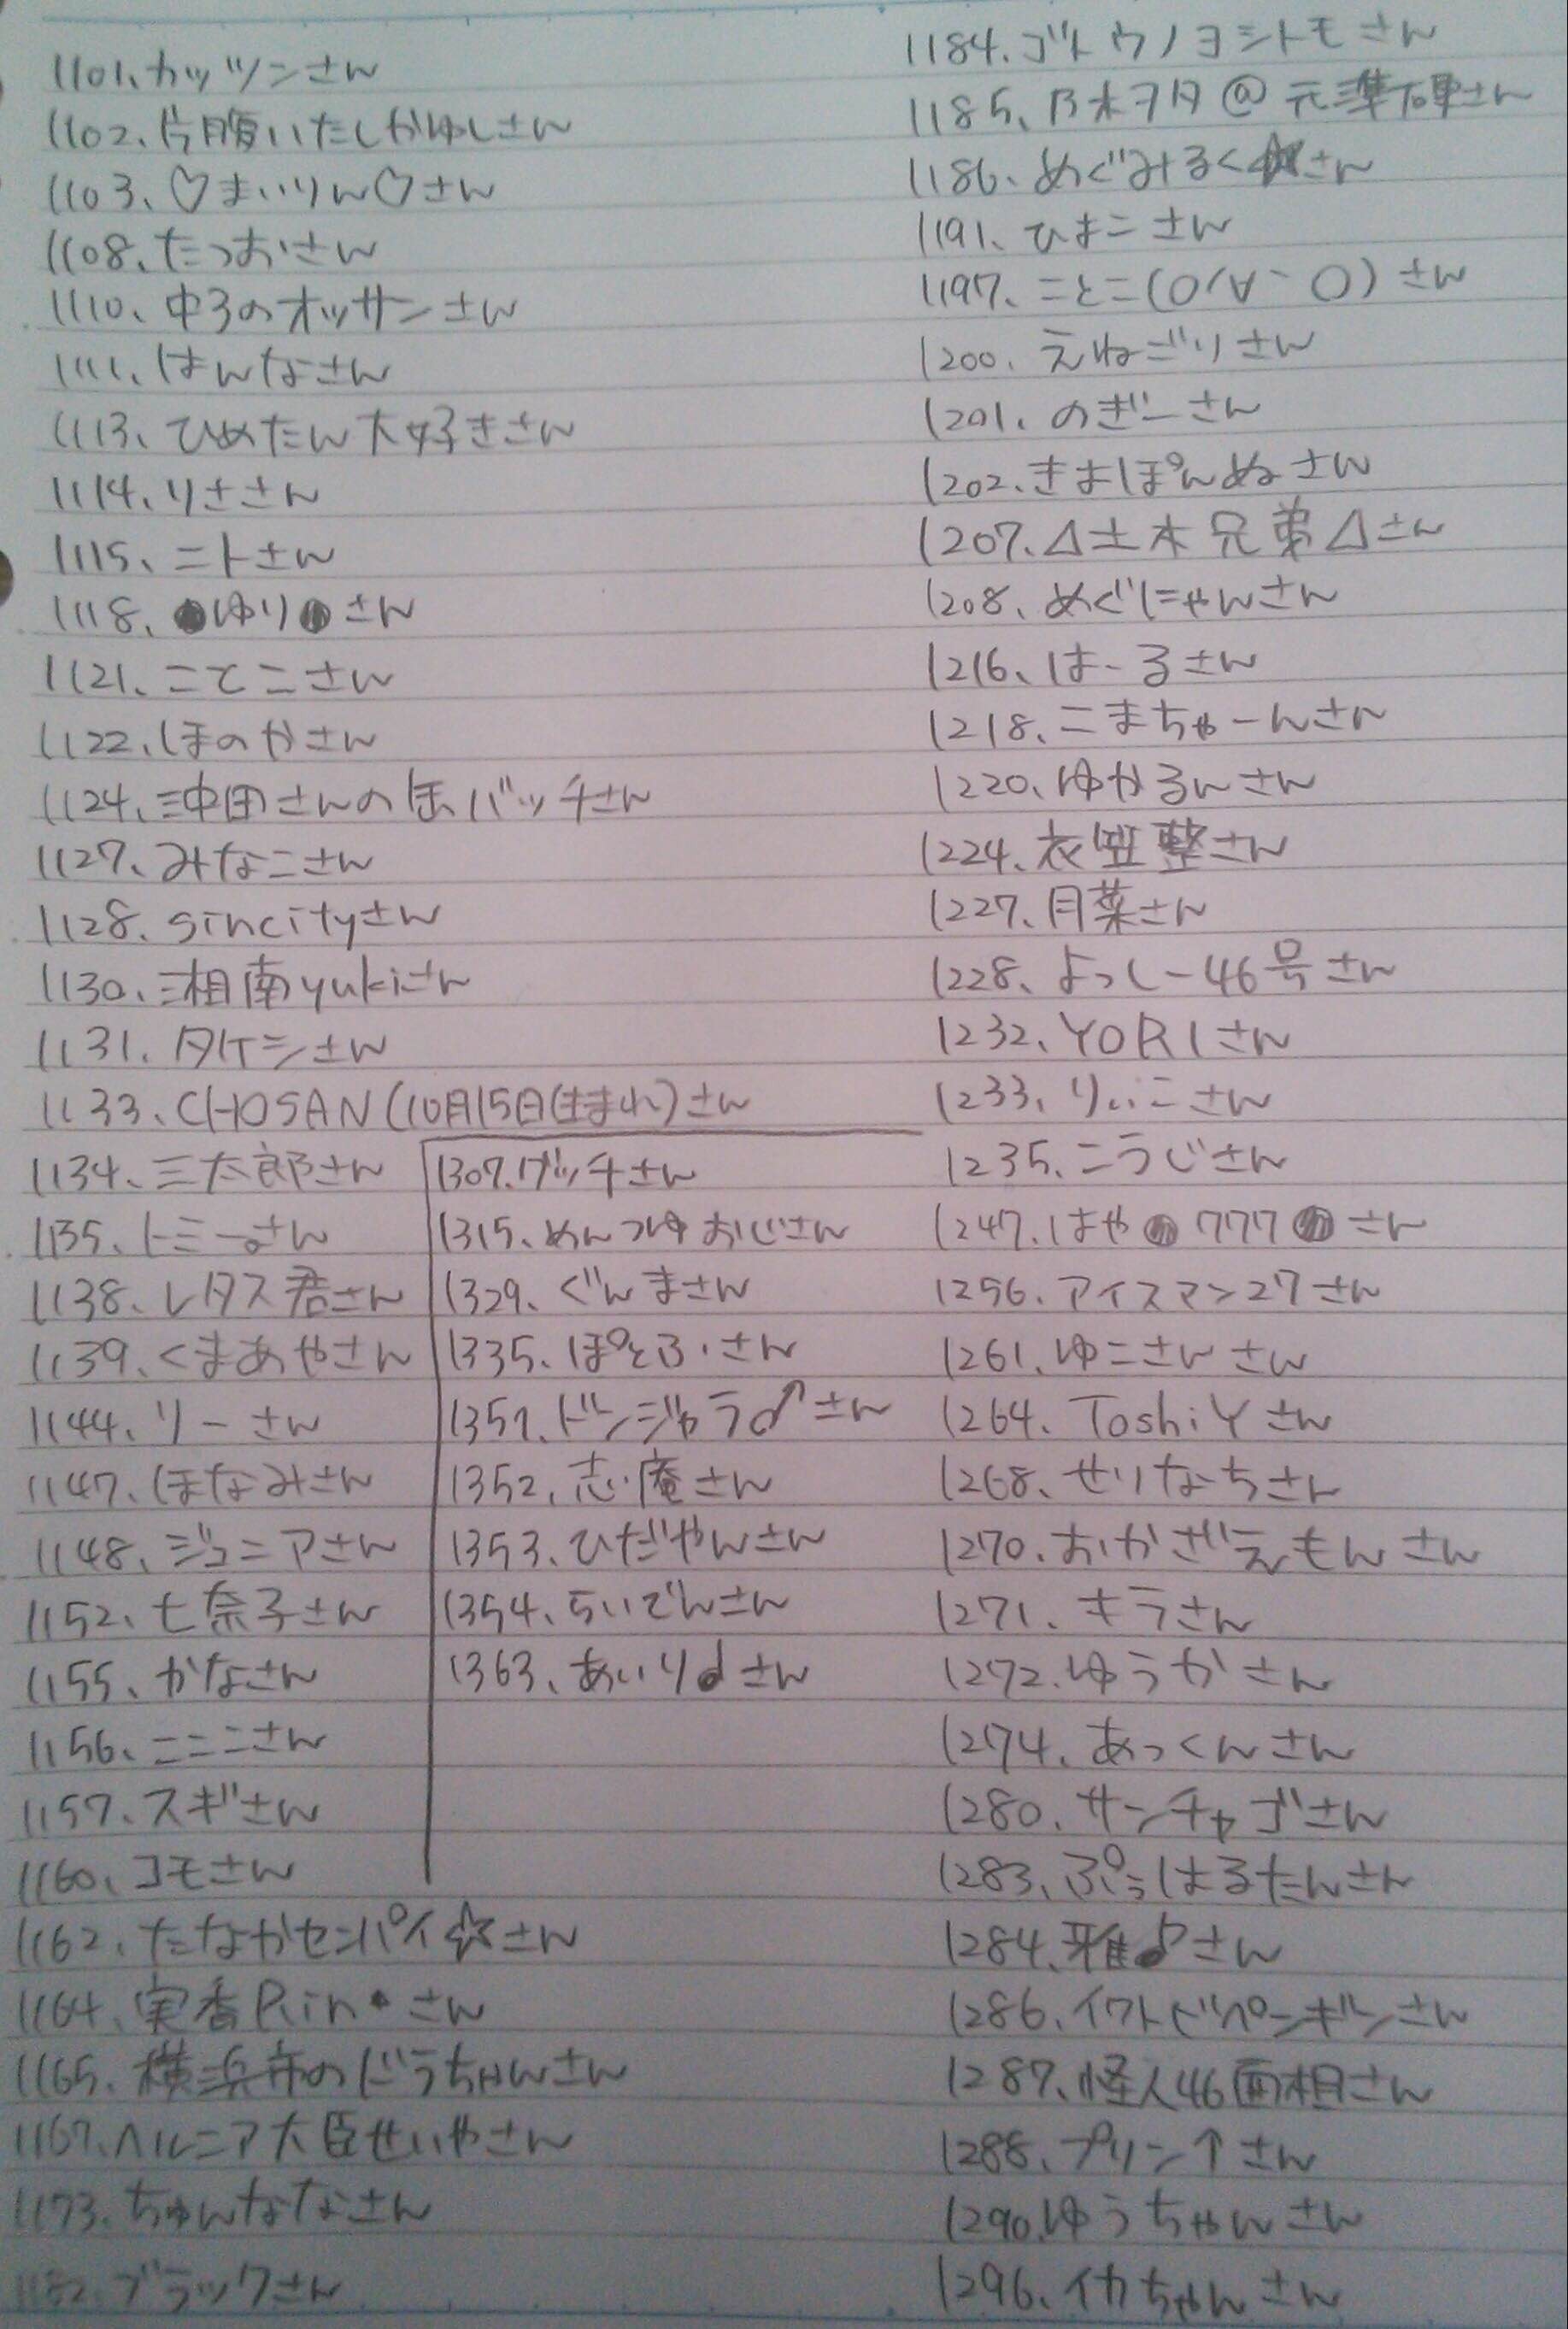 1101、カッツンさん
1102、片腹いたしかゆしさん
1103、♡まいりん♡さん
1108、たつおさん
1110、中3のオッサンさん
1111、はんなさん
1113、ひめたん大好きさん
1114、りささん
1115、ニトさん
1118、●ゆり●さん
1121、こてこさん
1122、ほのかさん
1124、沖田さんの缶バッチさん
1127、みなこさん
1128、sincityさん
1130、湘南yukiさん
1131、タケシさん
1133、CHOSAN(10月15日生まれ)さん
1134、三太郎さん
1135、トミーさん
1138、レタス君さん
1139、くまあやさん
1144、リーさん
1147、ほなみさん
1148、ジュニアさん
1152、七奈子さん
1155、かなさん
1156、こここさん
1157、スギさん
1160、コモさん
1162、たなかセンパイ☆さん
1164、実香Rin*さん
1165、横浜市のどうちゃんさん
1167、ヘルニア大臣せいやさん
1173、ちゅんななさん
1182、ブラックさん
1307、グッチさん
1315、めんつゆおじさん
1329、ぐんまさん
1335、ぽとふぃさん
1351、ドンジャラ♂さん
1352、志庵さん
1353、ひだやんさん
1354、らいでんさん
1363、あいり♩さん
1184、ゴトウノヨシトモさん
1185、乃木ヲタ@元準硬さん
1186、めぐみるく☆さん
1191、ひよこさん
1197、ことこ(○´∀`○)さん
1200、えねごりさん
1201、のぎーさん
1202、きよぽんぬさん
1207、△土木兄弟△さん
1208、めぐにゃんさん
1216、はーるさん
1218、こまちゃーんさん
1220、ゆかるんさん
1224、衣笠整さん
1227、月菜さん
1228、よっしー46号さん
1232、YORIさん
1233、りぃこさん
1235、こうじさん
1247、はや●777●さん
1256、アイスマン27さん
1261、ゆこさんさん
1264、ToshiYさん
1268、せりなちさん
1270、おかざえもんさん
1271、キラさん
1272、ゆうかさん
1274、あっくんさん
1280、サンチャゴさん
1283、ぷぅはるたんさん
1284、雅♪さん
1286、イワトビペンギンさん
1287、怪人46面相さん
1288、プリン↑さん
1290、ゆうちゃんさん
1296、イカちゃんさん